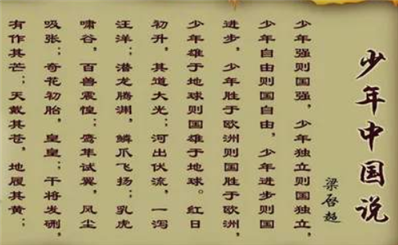 少年中国说
梁启超
少年强则国强，少年独立则国
少年自由则国自由，少年进步则国
进步，少年胜于欧洲则国胜于欧洲，
少年雄于地球则国雄于地球。红日
初升，其道大光；河出伏流，一泻
汪洋；潜龙腾渊，鳞爪飞扬；乳虎
啸谷，百兽震惶；鹰隼试翼，风尘
吸张；奇花初胎，皇皇；干将发硎，
有作其芒；天戴其苍，地履其黄；